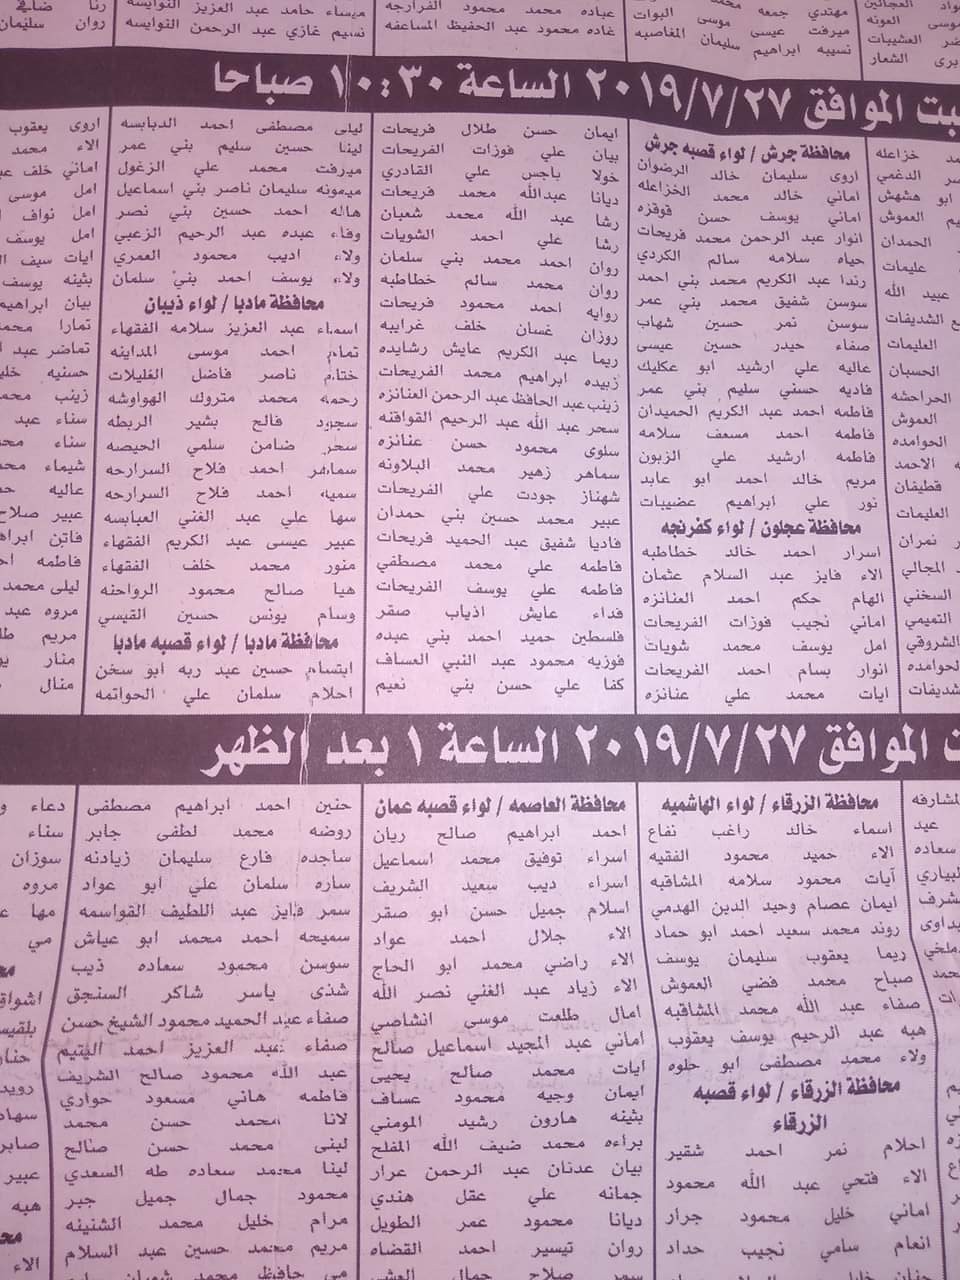 عباده محمد محمود الفرارجه
غاده محمود عبد الحفيظ المساعفه
ميساء حامد عبد العزيز النوايسه
نسيم غازي عبد الرحمن النوايسه
مهتدي جمعه
ميرفت عيسى موسى البوات
نسيبه ابراهيم سليمان المغاصبه
بت الموافق ٢٠١٩/٧/٢٧ الساعة ١٠:٣٠ صباحا
محافظة جرش / لواء قصبه جرش
اروى سليمان خالد الرضوان
اماني خالد محمد الخزاعله
اماني يوسف حسن قوقزه
انوار عبد الرحمن محمد فريحات
حياه سلامه سالم الكردي
رندا عبد الكريم محمد بني احمد
سوسن شفيق محمد بني عمر
سوسن نمر حسين شهاب
صفاء حيدر حسين عيسى
عاليه علي ارشيد ابو عكليك
فاديه حسني سليم بني عمر
فاطمه احمد عبد الكريم الحميدان
فاطمه احمد مسعف سلامه
فاطمه ارشيد علي الزبون
مريم خالد احمد ابو عابد
نور علي ابراهيم عضيبات
محافظة عجلون / لواء كفرنجه
اسرار احمد خالد خطاطبه
الاء فايز عبد السلام عثمان
الهام حكم احمد العنانزه
اماني نجيب فوزات الفريحات
امل يوسف محمد شويات
انوار بسام احمد الفريحات
ايات محمد علي عنانزه
ايمان حسن طلال فريحات
بيان علي فوزات الفريحات
خولا باجس علي القادري
ديانا عبدالله محمد فريحات
رشا عبد الله محمد شعبان
رشا علي احمد الشويات
روان احمد محمد بني سلمان
روان محمد سالم خطاطبه
روايه احمد محمود فريحات
روزان غسان خلف غرايبه
ريما عبد الكريم عايش رشايده
زبيده ابراهيم محمد الفريحات
زينب عبد الحافظ عبد الرحمن العنانزه
سحر عبد الله عبد الرحيم القواقنه
سلوى محمود حسن عنانزه
سماهر زهير محمد البلاونه
شهناز جودت علي الفريحات
عبير محمد حسين بني حمدان
فاديا شفيق عبد الحميد فريحات
فاطمه علي محمد مصطفي
فاطمه علي يوسف الفريحات
فداء عايش اذياب صقر
فلسطين حميد احمد بني عبده
فوزيه محمود عبد النبي العساف
كفا علي حسن بني نعيم
ليلى مصطفى احمد الدبابسه
لينا حسين سليم بني عمر
ميرفت محمد علي الزغول
ميمونه سليمان ناصر بني اسماعيل
هاله احمد حسين بني نصر
وفاء عبده عبد الرحيم الزعبي
ولاء اديب محمود العمري
ولاء يوسف احمد بني سلمان
محافظة مادبا / لواء ذيبان
اسماء عبد العزيز سلامه الفقهاء
تمام احمد موسى المداينه
ختام ناصر فاضل الغليلات
رحمه محمد متروك الهواوشه
سجود فالح بشير الربطه
سحر ضامن سلمي الحيصه
سماهر احمد فلاح السرارحه
سميه احمد فلاح السرارحه
سها علي عبد الغني العبابسه
عبير عيسى عبد الكريم الفقهاء
منور محمد خلف الفقهاء
هيا صالح محمود الرواحنه
وسام يونس حسين القبسي
محافظة مادبا / لواء قصبه مادبا
ابتسام حسين عبد ربه ابو سخن
احلام سلمان علي الحواتمه
ت الموافق ٢٠١٩/٧/٢٧ الساعة ١ بعد الظهر
محافظة الزرقاء / لواء الهاشميه
اسماء خالد راغب نفاع
الاء حميد محمود الفقيه
آيات محمود سلامه المشاقبه
ايمان عصام وحيد الدين الهدمي
روند محمد سعيد احمد ابو حماد
ريما يعقوب سليمان يوسف
صباح محمد فضي العموش
صفاء عبد الله محمد المشاقبه
هبه عبد الرحيم يوسف يعقوب
ولاء محمد مصطفى ابو حلوه
محافظة الزرقاء / لواء قصبه
الزرقاء
احلام نمر احمد شقير
الاء فتحي عبد الله محمود
اماني خليل محمود جرار
انعام سامي نجيب حداد
محافظة العاصمه / لواء قصبه عمان
احمد ابراهيم صالح ريان
اسراء توفيق محمد اسماعيل
اسراء ديب سعيد الشريف
اسلام جميل حسن ابو صقر
الاء جلال احمد عواد
الاء راضي محمد ابو الحاج
الاء زياد عبد الغني نصر الله
امال طلعت موسى انشاصي
أماني عبد المجيد اسماعيل صالح
ايات محمد صالح يحيى
ايمان وجيه محمود عساف
بثينه هارون رشيد المومني
براءه محمد ضيف الله المفلح
بيان عدنان عبد الرحمن عرار
جمانه علي عقل هندي
ديانا محمود عمر الطويل
روان تيسير احمد القضاه
سمر صلاح جمال
حنين احمد ابراهيم مصطفى
روضه محمد لطفي جابر
ساجده فارع سليمان زيادنه
ساره سلمان علي ابو عواد
سمر فايز عبد اللطيف القواسمه
سميحه احمد محمد ابو عياش
سوسن محمود سعاده ذيب
شذى ياسر شاكر السنجق
صفاء عبد الحميد محمود الشيخ حسن
صفاء عبد العزيز احمد اليتيم
عبد الله محمود صالح الشريف
فاطمه هاني مسعود حواري
لانا محمد حسن محمد
لبنى محمد حسن صالح
لينا محمد سعاده طه السعدي
محمود جمال جميل جبر
مرام خليل محمد الشنينه
مريم محمد حسين عبد السلام